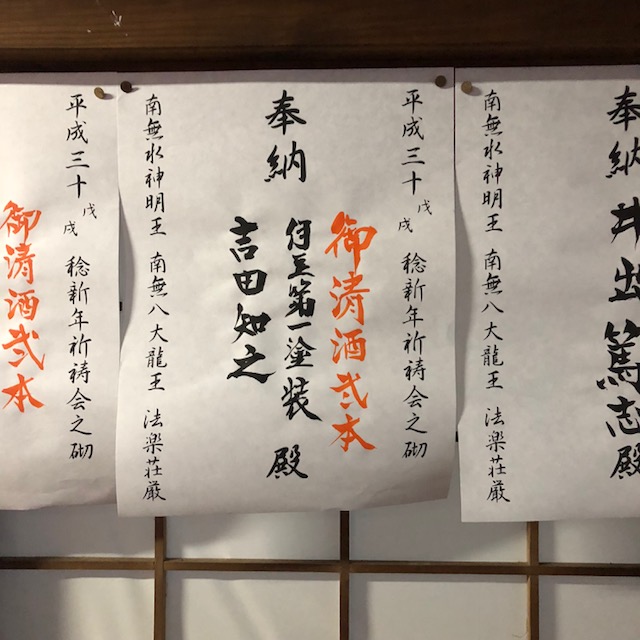 奉納 井出篤志殿
南無水神明王 南無八大龍王 法楽荘厳
平成三十戊戌 稔新年祈祷会之砌
御清酒弐本
奉納 伊豆第一塗装 殿
吉田知之
南無水神明王 南無八大龍王 法楽荘厳
平成三十戊戌 稔新年祈祷会之砌
御清酒弐本